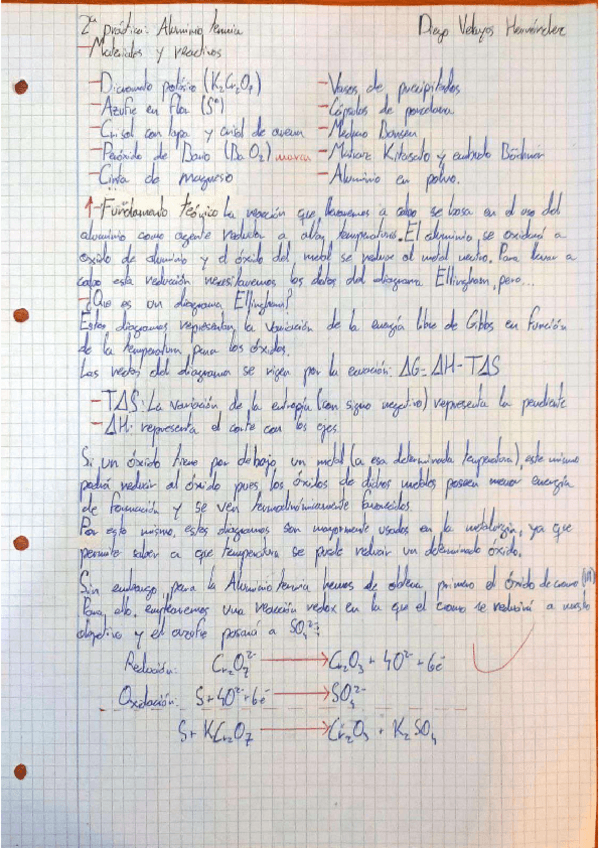 2ª práctica: Aluminio termia
Diego Vebayos Hernández
-Materiales y reactivos
-Dicromato potásico (K2Cr2O7)
-Azufre en flor (S⁰)
-Crisol con tapa y crisol de
-Peróxido de Bario (BaO2)
-Cinta de magnesio
-Vasos de precipitados
-Cápsulas de porcelana
-Mechero Bunsen
-Matraz Kitasato y embudo Büchner
-Aluminio en polvo.
1-Fundamento teórico La reacción que llevaremos a cabo se basa en el uso del
aluminio como agente reductor a altas temperaturas. El aluminio se oxidará a
óxido de aluminio y el óxido del metal se reduce al metal neutro. Para llevar a
cabo esta reducción necesitaremos los datos del diagrama Ellingham, pero...
-¿Que es un diagrama Ellingham?
Estos diagramas representan la variación de la energía libre de Gibbs en función
de la temperatura para los óxidos.
Las rectas del diagrama se rigen por la ecuación: ΔG = ΔH - TΔS
-TΔS: La variación de la entropía (con signo negativo) representa la pendiente
-ΔH: representa el corte con los ejes
Si un óxido tiene por debajo un metal (a esa determinada temperatura), este mismo
podrá reducir al óxido pues los óxidos de dichos metales poseen menor energía
de formación y se ven termodinámicamente favorecidos.
Por esto mismo, estos diagramas son mayormente usados en la metalurgia, ya que
permite saber a que temperatura se puede reducir un determinado óxido.
Sin embargo, para la Aluminio termia hemos de obtener primero el óxido de cromo (III)
Para ello, emplearemos una reacción redox en la que el cromo se reducirá a nuestro
objetivo y el azufre pasará a SO4²⁻:
Reducción: Cr2O7²⁻ → Cr2O3 + 4O²⁻ + 6e⁻
Oxidación: S + 4O²⁻ + 6e⁻ → SO4²⁻
S + K2Cr2O7 → Cr2O3 + K2SO4